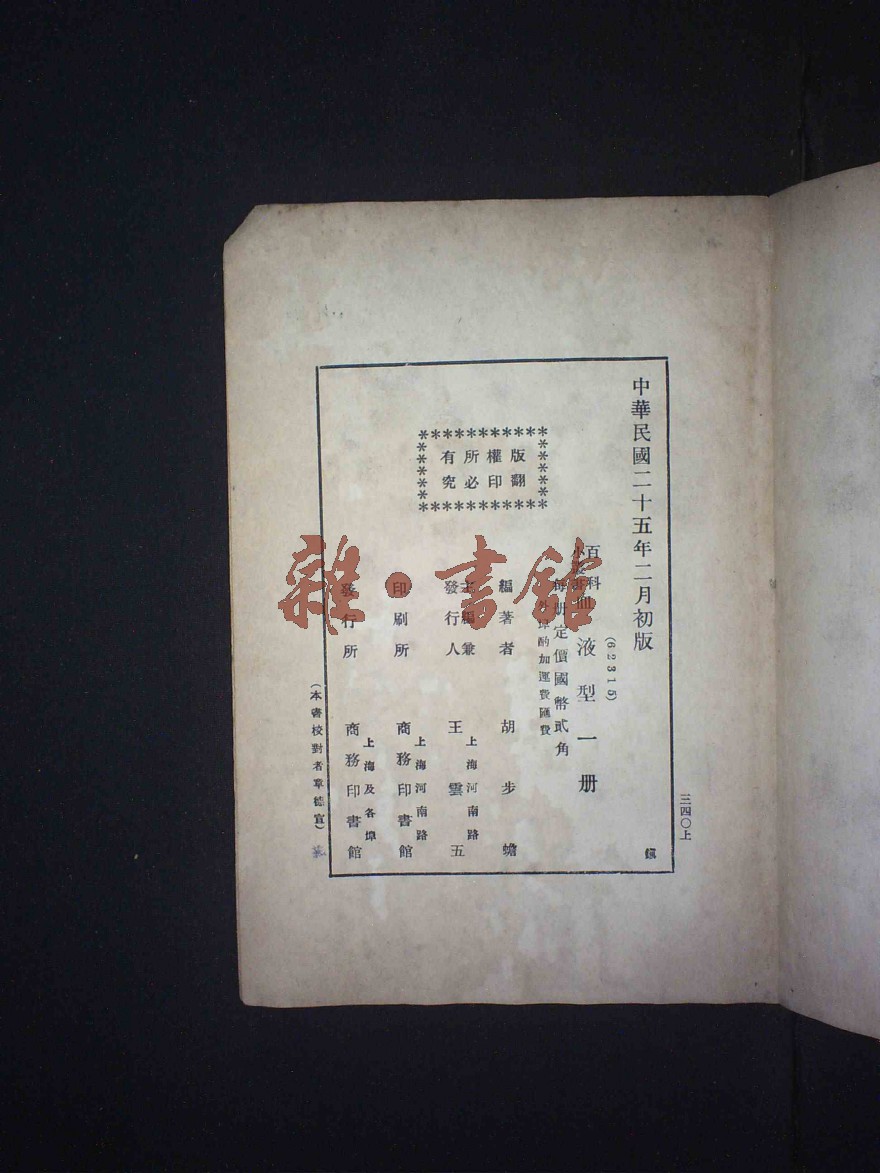 中華民國二十五年二月初版
(62315)
百科
小叢書
血液型一册
每册定價國幣貳角
外埠酌加運費匯費
版權所有
翻印必究
編著者 胡步蟾
主編兼
發行人 王雲五
上海河南路
印刷所 商務印書館
上海河南路
發行所 商務印書館
上海及各埠
(本書校對者章德宣)
三四〇上
雜·書館